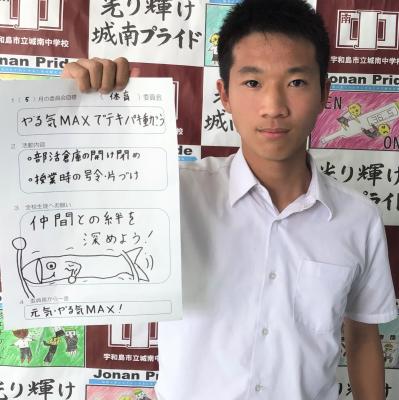 光り輝け
城南プライド
南中
宇和島市立城南中学校
Jonan Pride
1 (5)月の委員会目標 (体育)委員会
やる気MAXでテキパキ動かう
2 活動内容
○部活倉庫の開け閉め
○授業時の号令・片づけ
3 全校生徒へお願い
仲間との絆を
深めよう!
4 委員長から一言
元気・やる気MAX!
宇和島市立城南中学校
Jonan Pride
光り輝け
城南プライド
36.5
光り輝け
Jonan Pride
宇和島市立城南中学校
光り輝け